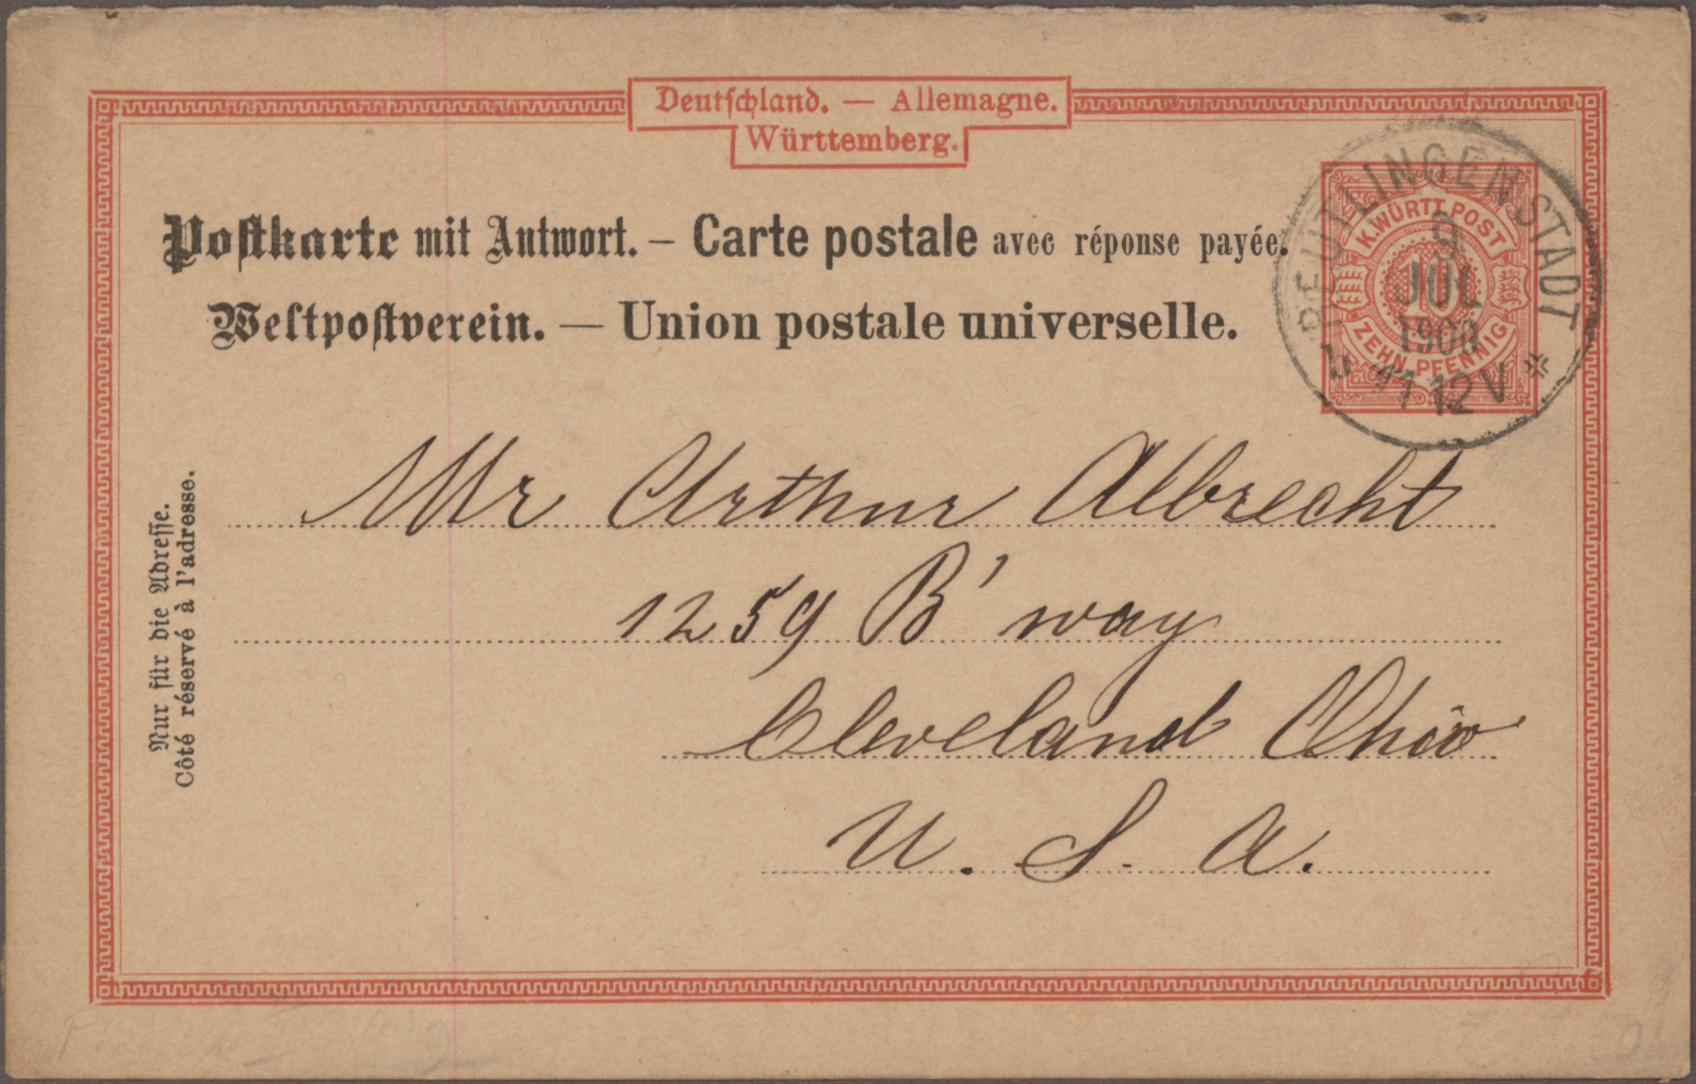 Deutschland. — Allemagne.
Württemberg.
Postkarte mit Antwort. – Carte postale avec réponse payée.
Weltpostverein. — Union postale universelle.
K.WÜRTT.POST
10
ZEHN PFENNIG
REUTLINGEN STADT
9
JUL
1900
11 12 V
Nur für die Adresse.
Côté réservé à l'adresse.
Mr Arthur Albrecht
1259 B'way
Cleveland Ohio
U. S. A.